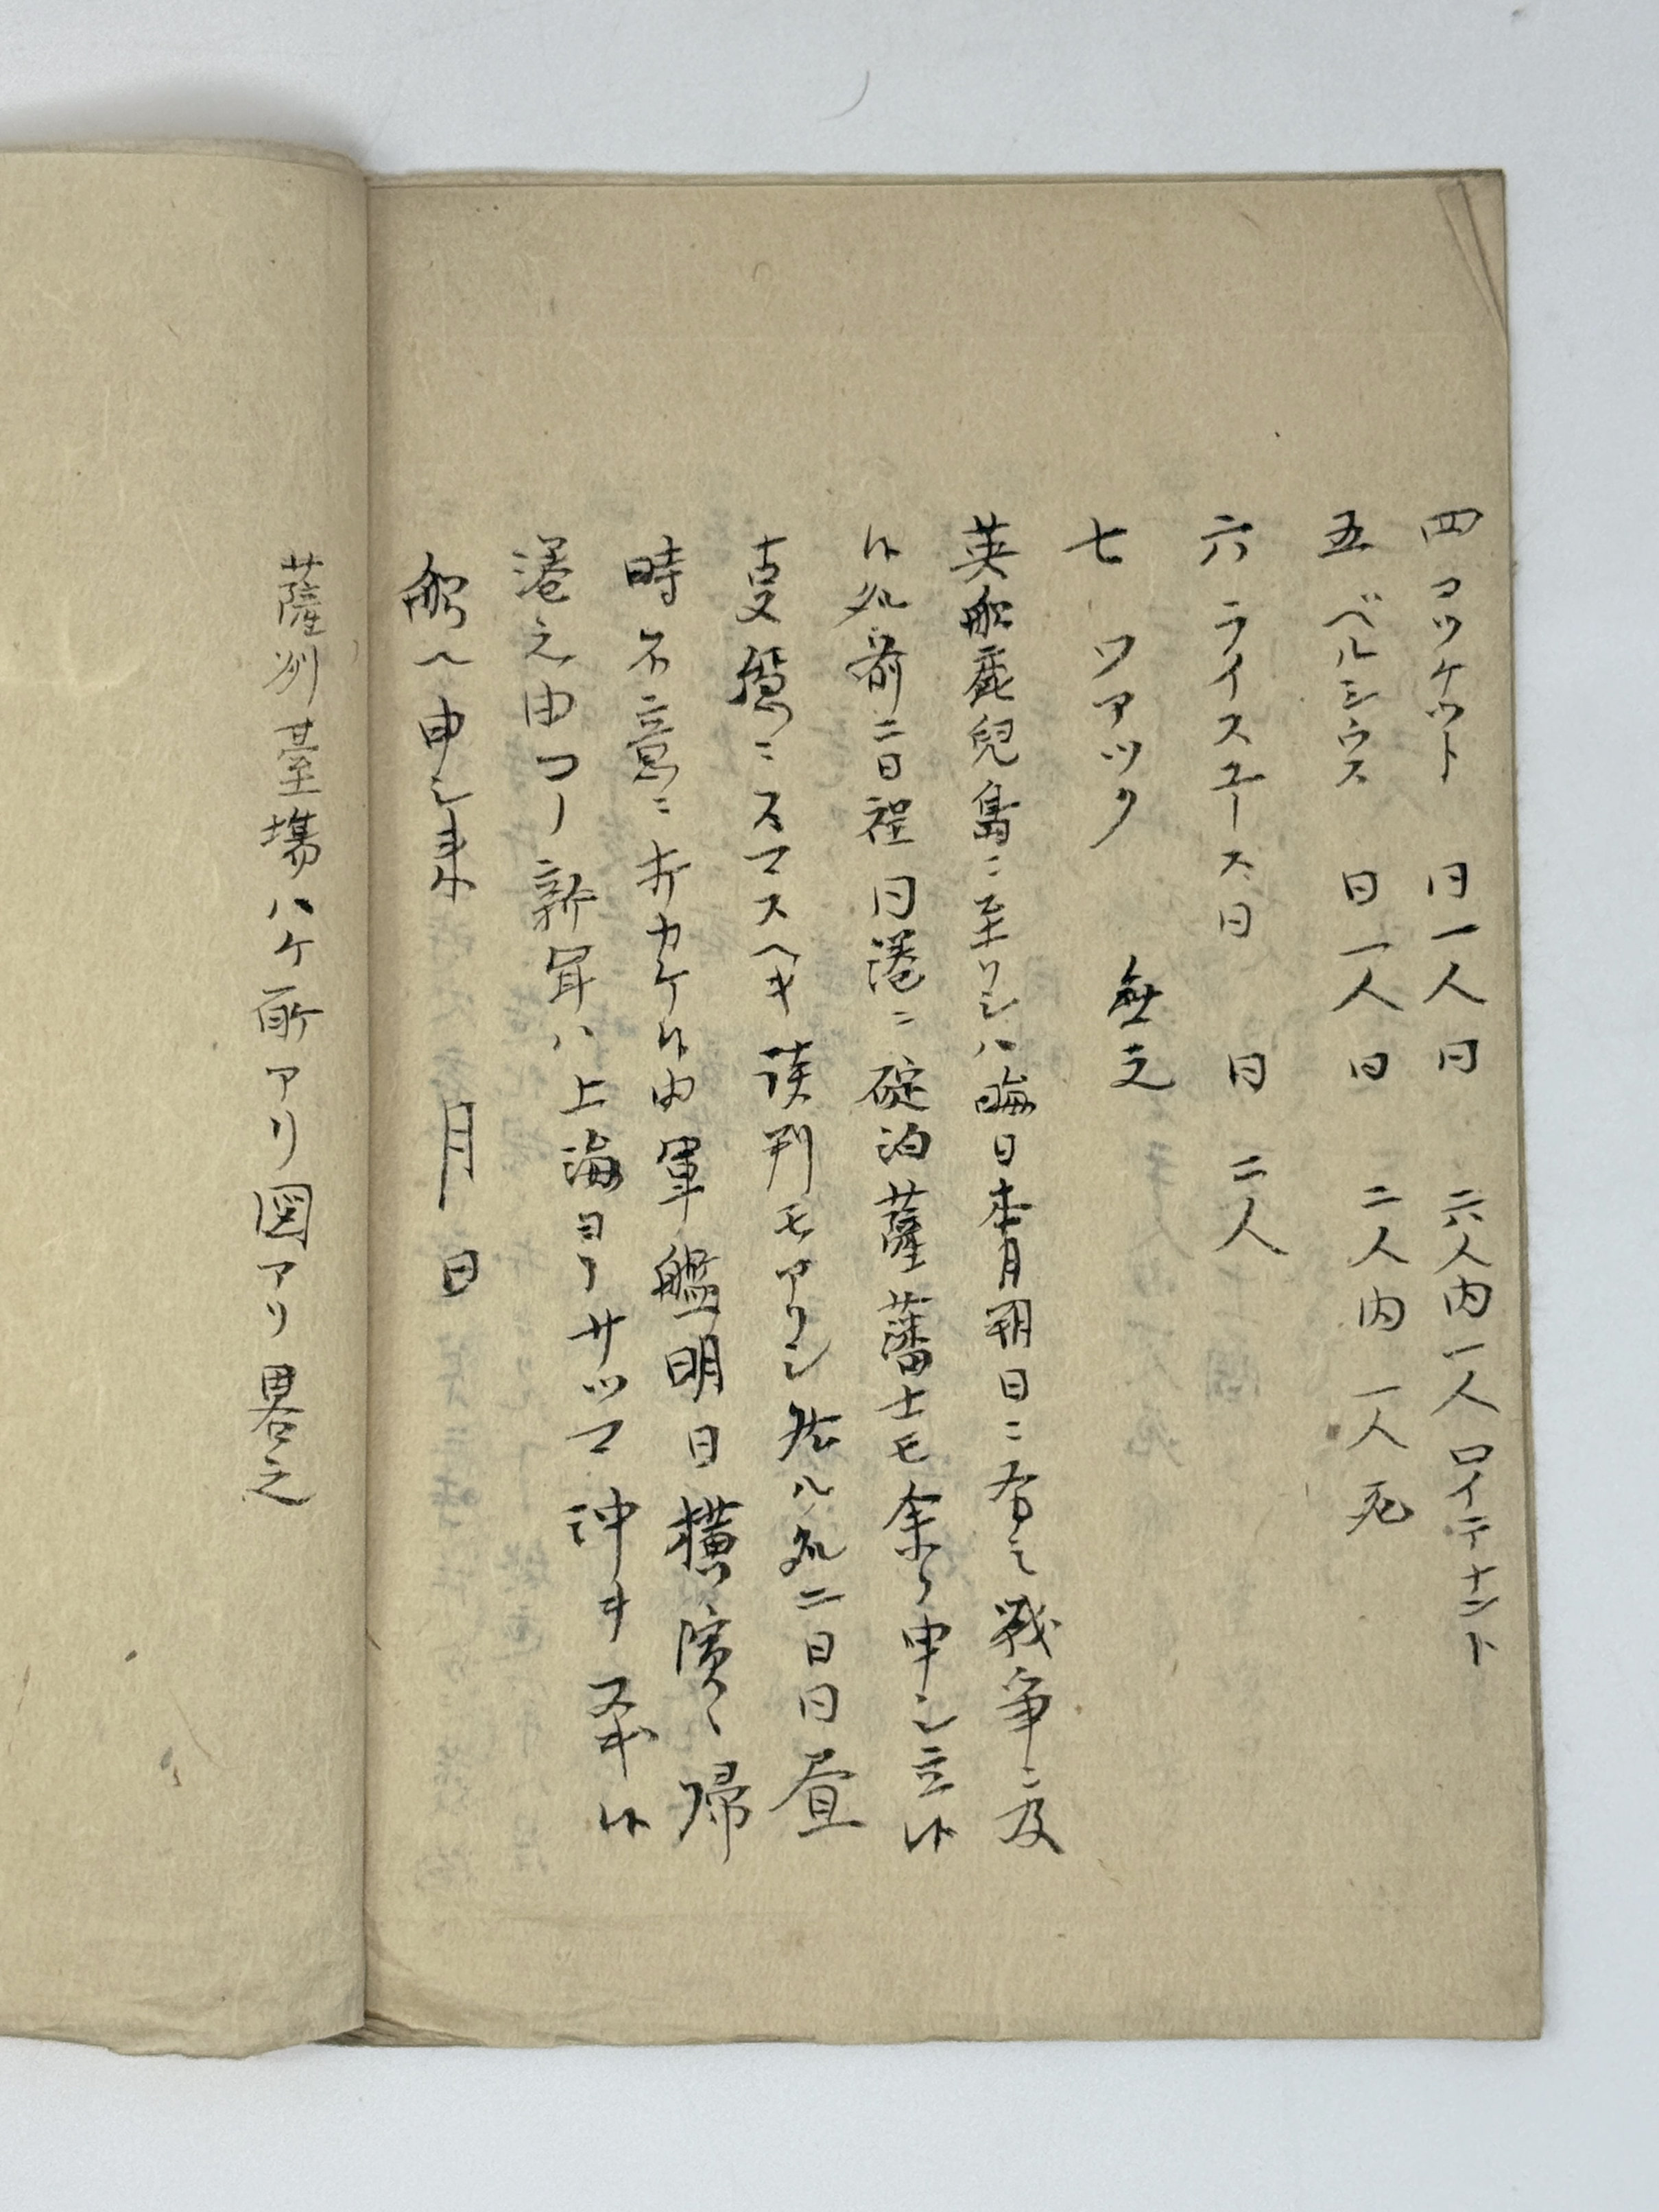 四 コツケツト 同一人同 六人内一人ロイテナント
五 ベルシウス 同一人同 二人内一人死
六 ライスユース同 同 二人
七 ツアツク 無之
英船鹿児島ニ至リシハ晦日本月朔日ニ有之戦争ニ及
候処前二日程同港ニ碇泊薩藩士モ余々申シ立候
ニスマスヘキ談判モアリシ然ル処二日同昼
時不意ニ打カケ候由軍艦明日横濱ヘ帰
港之由コノ新聞ハ上海ヨリサツマ沖ヲ通候
船ヘ申シ来候 月 日
薩州臺場ハケ所アリ図アリ畧之